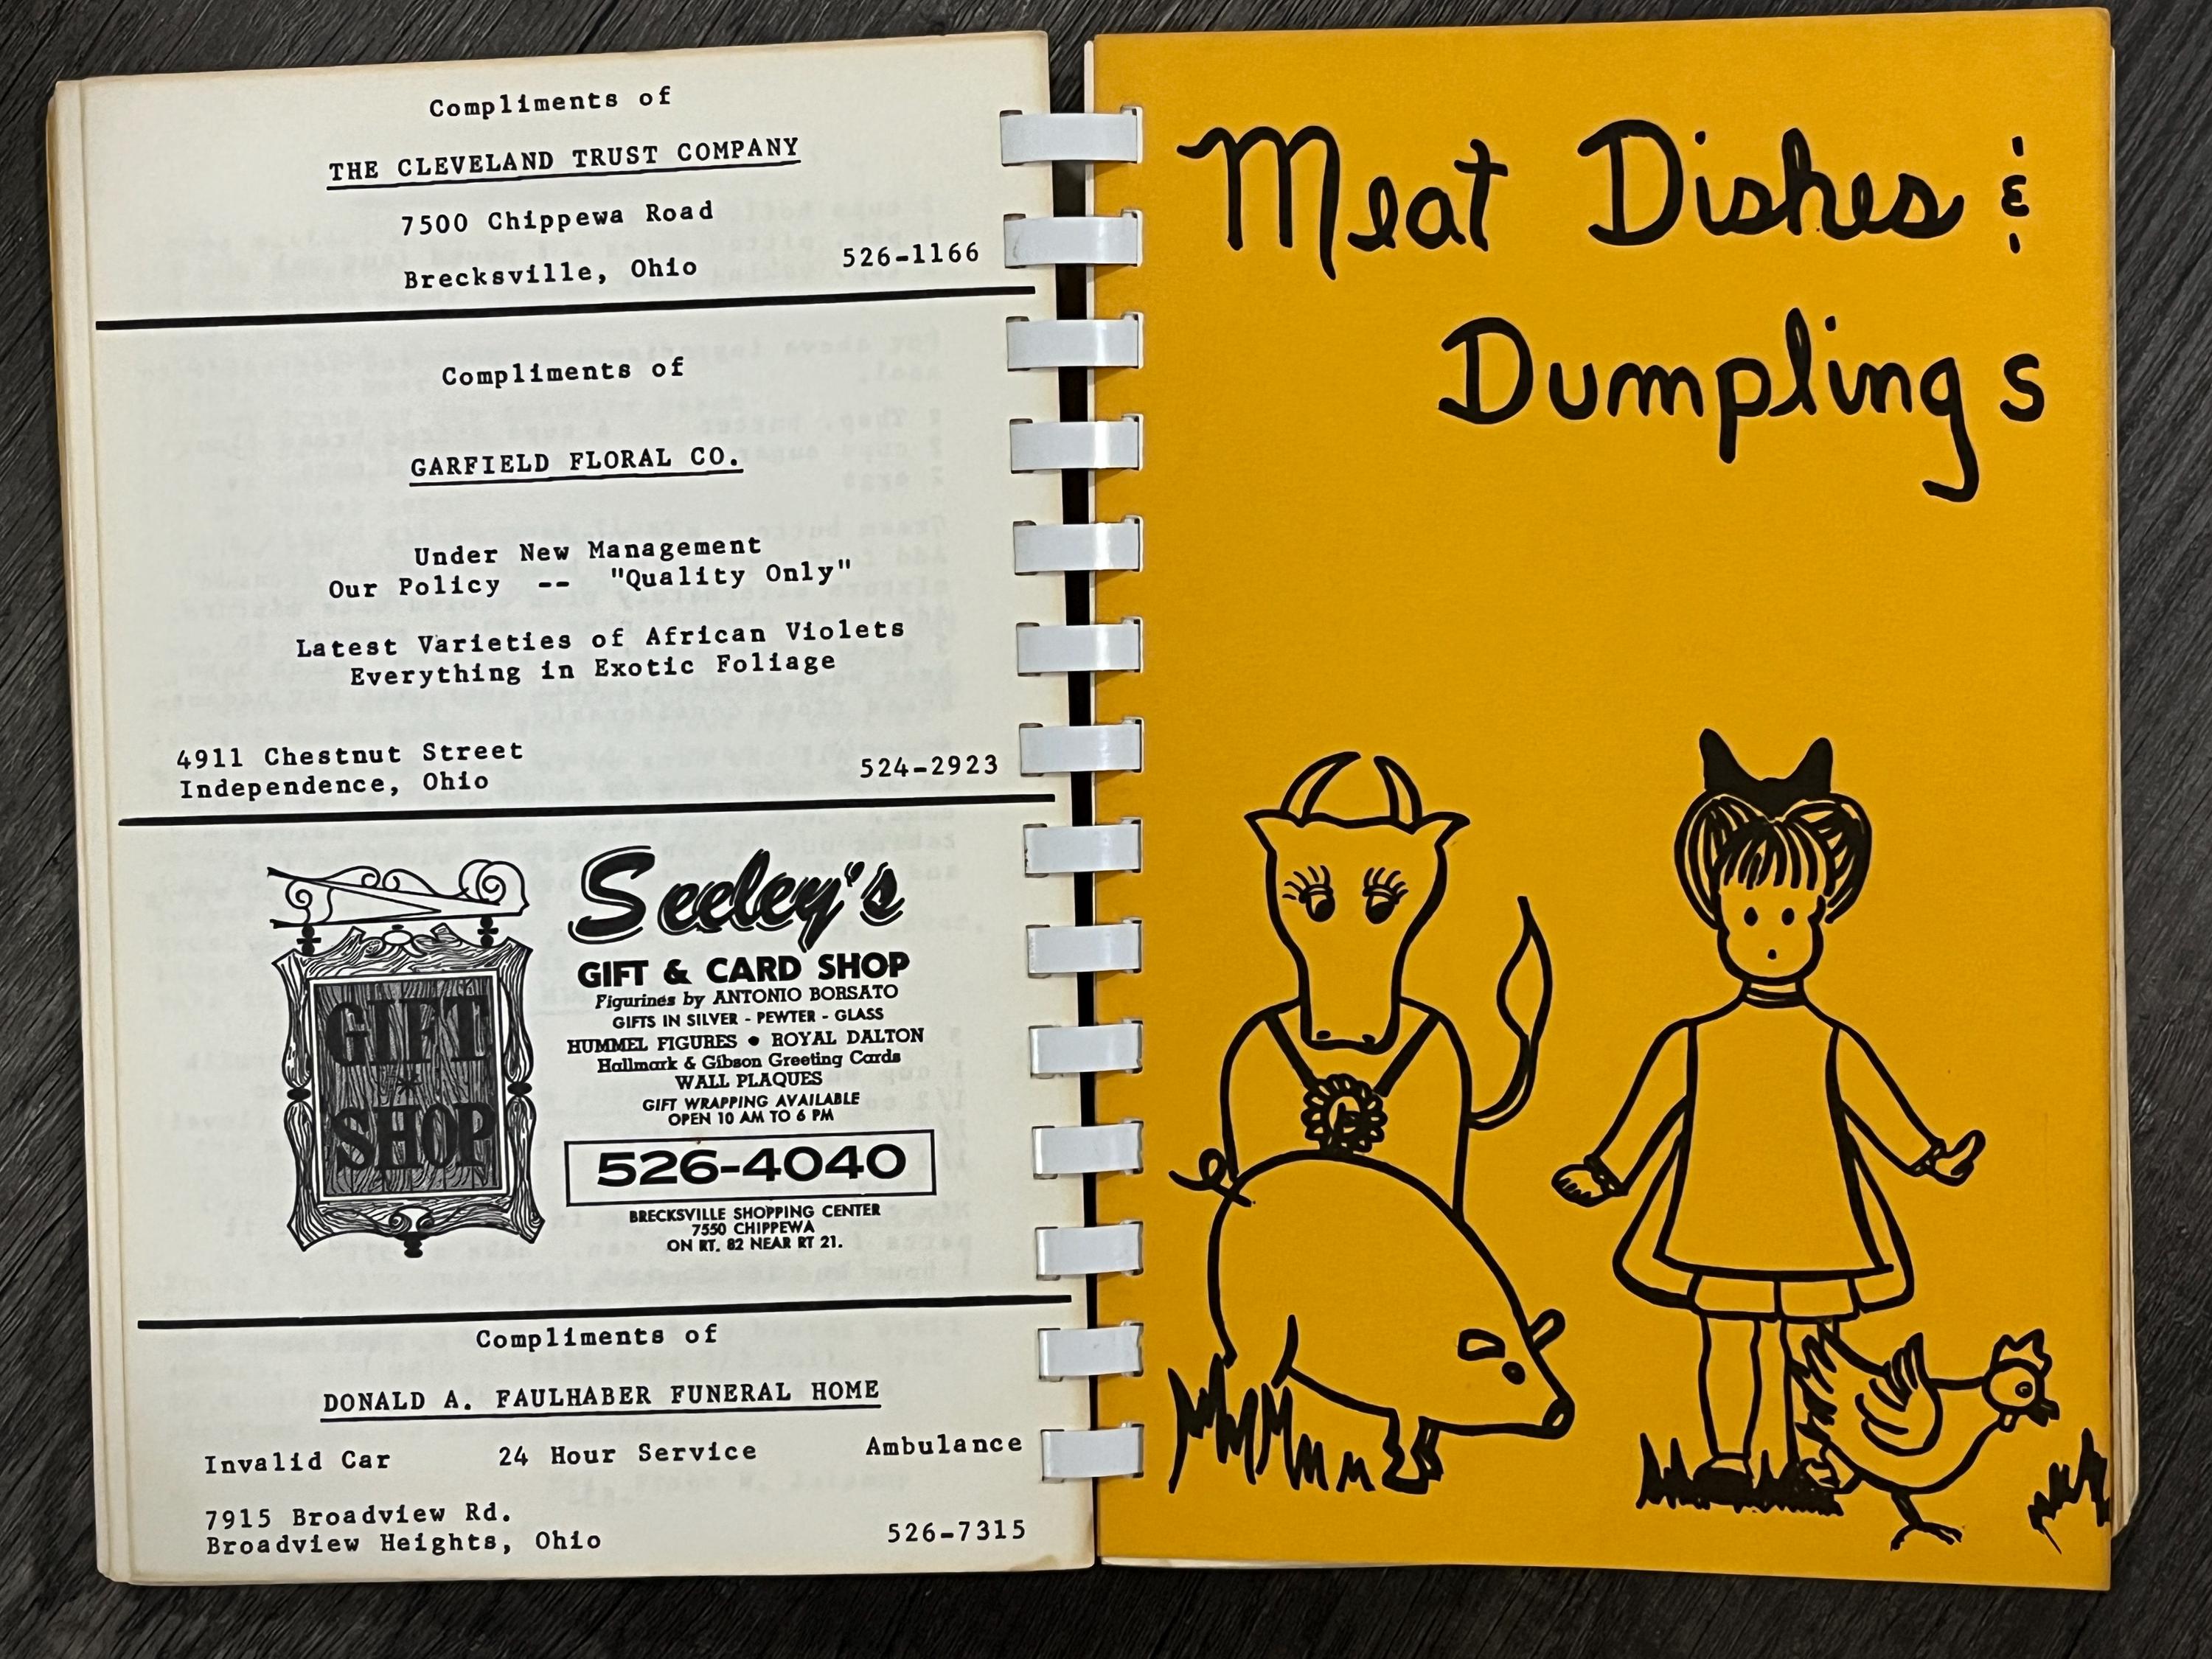 Compliments of
THE CLEVELAND TRUST COMPANY
7500 Chippewa Road
Brecksville, Ohio 526-1166
Compliments of
GARFIELD FLORAL CO.
Under New Management
Our Policy -- "Quality Only"
Latest Varieties of African Violets
Everything in Exotic Foliage
4911 Chestnut Street
Independence, Ohio 524-2923
GIFT
*
SHOP
Seeley's
GIFT & CARD SHOP
Figurines by ANTONIO BORSATO
GIFTS IN SILVER - PEWTER - GLASS
HUMMEL FIGURES • ROYAL DALTON
Hallmark & Gibson Greeting Cards
WALL PLAQUES
GIFT WRAPPING AVAILABLE
OPEN 10 AM TO 6 PM
526-4040
BRECKSVILLE SHOPPING CENTER
7550 CHIPPEWA
ON RT. 82 NEAR RT 21.
Compliments of
DONALD A. FAULHABER FUNERAL HOME
Invalid Car 24 Hour Service Ambulance
7915 Broadview Rd.
Broadview Heights, Ohio 526-7315
Meat Dishes &
Dumplings